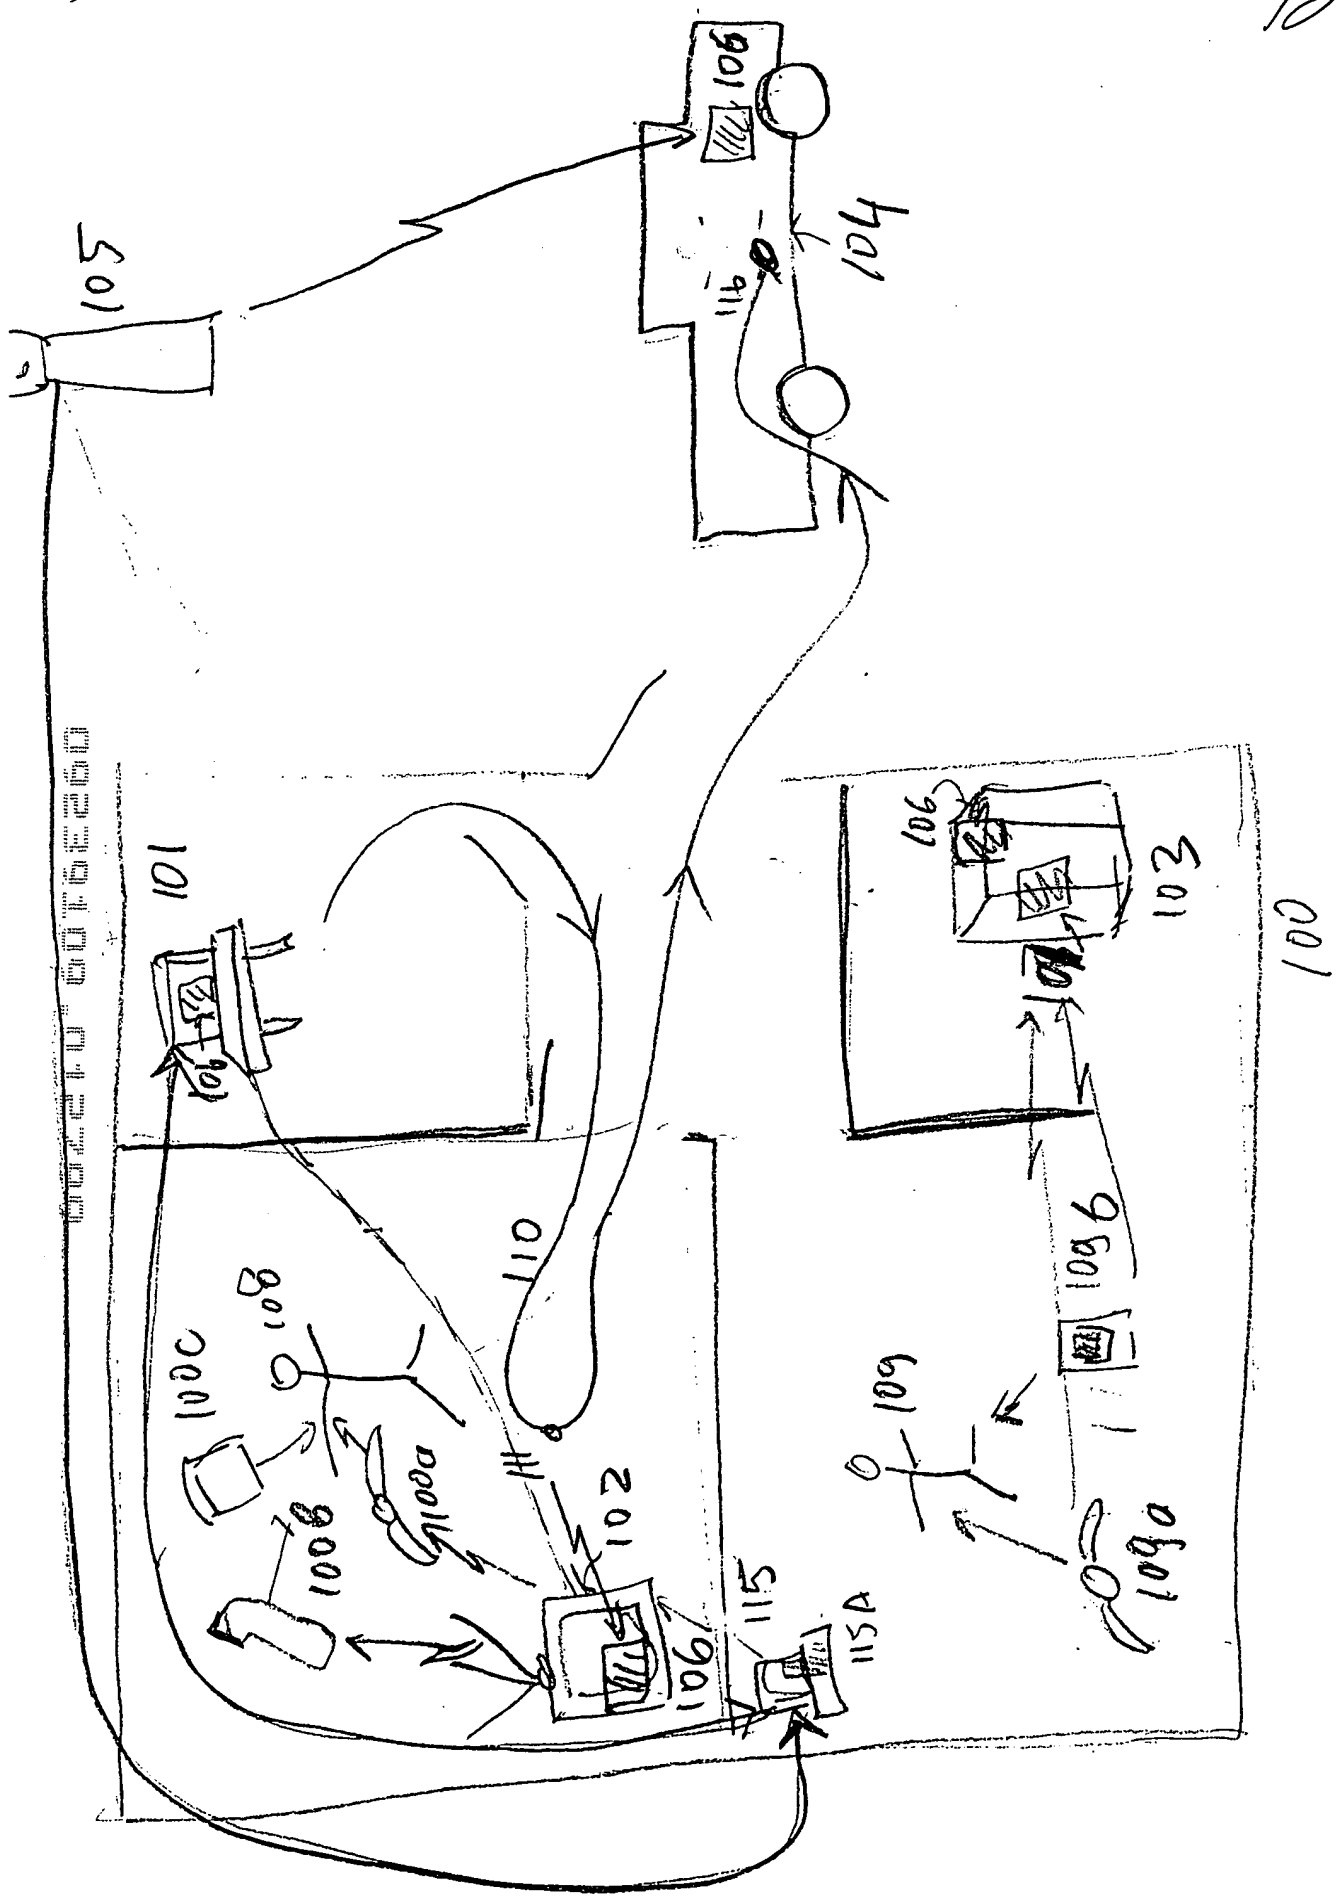 105
106
116
104
101
106
100C
108
100B
100a
110
102
106
115
115A
106
103
109
109b
109a
100